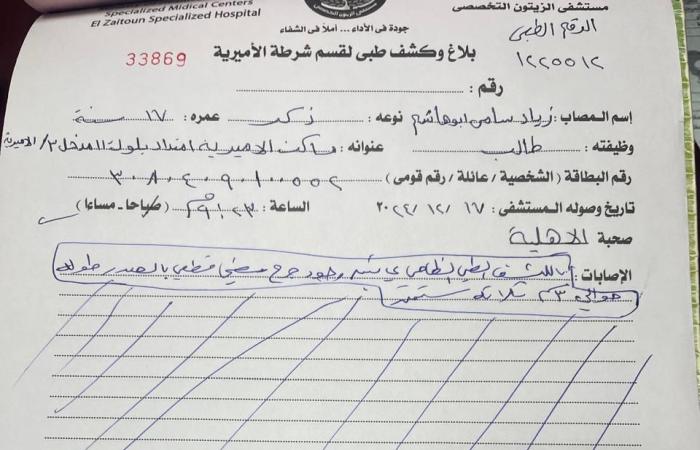 Specialized Medical Centers
El Zaitoun Specialized Hospital
مستشفى الزيتون التخصصى
جودة فى الأداء ... أملاً فى الشفاء
الرقم الطبى
١٢٢٥٥١٢
33869
بلاغ وكشف طبى لقسم شرطة الأميرية
رقم :
إسم المصاب : زياد سامى ابوهاشم نوعه : ذكر عمره : ١٧ سنة
وظيفته : طالب عنوانه : مساكن الاميرية امتداد بلوك المدخل ٢/ الاميرية
رقم البطاقة (الشخصية / عائلة / رقم قومى)
تاريخ وصوله المستشفى : ١٧ / ١٢ / ٢٠٢٢ الساعة : (صباحا - مساءا)
صحبة الاهلية
الإصابات : بالكشف الطبى الظاهرى تبين وجود جرح سطحى قطعى بالصدر طوله
حوالى ٣سم ثلاثة سنتمتر